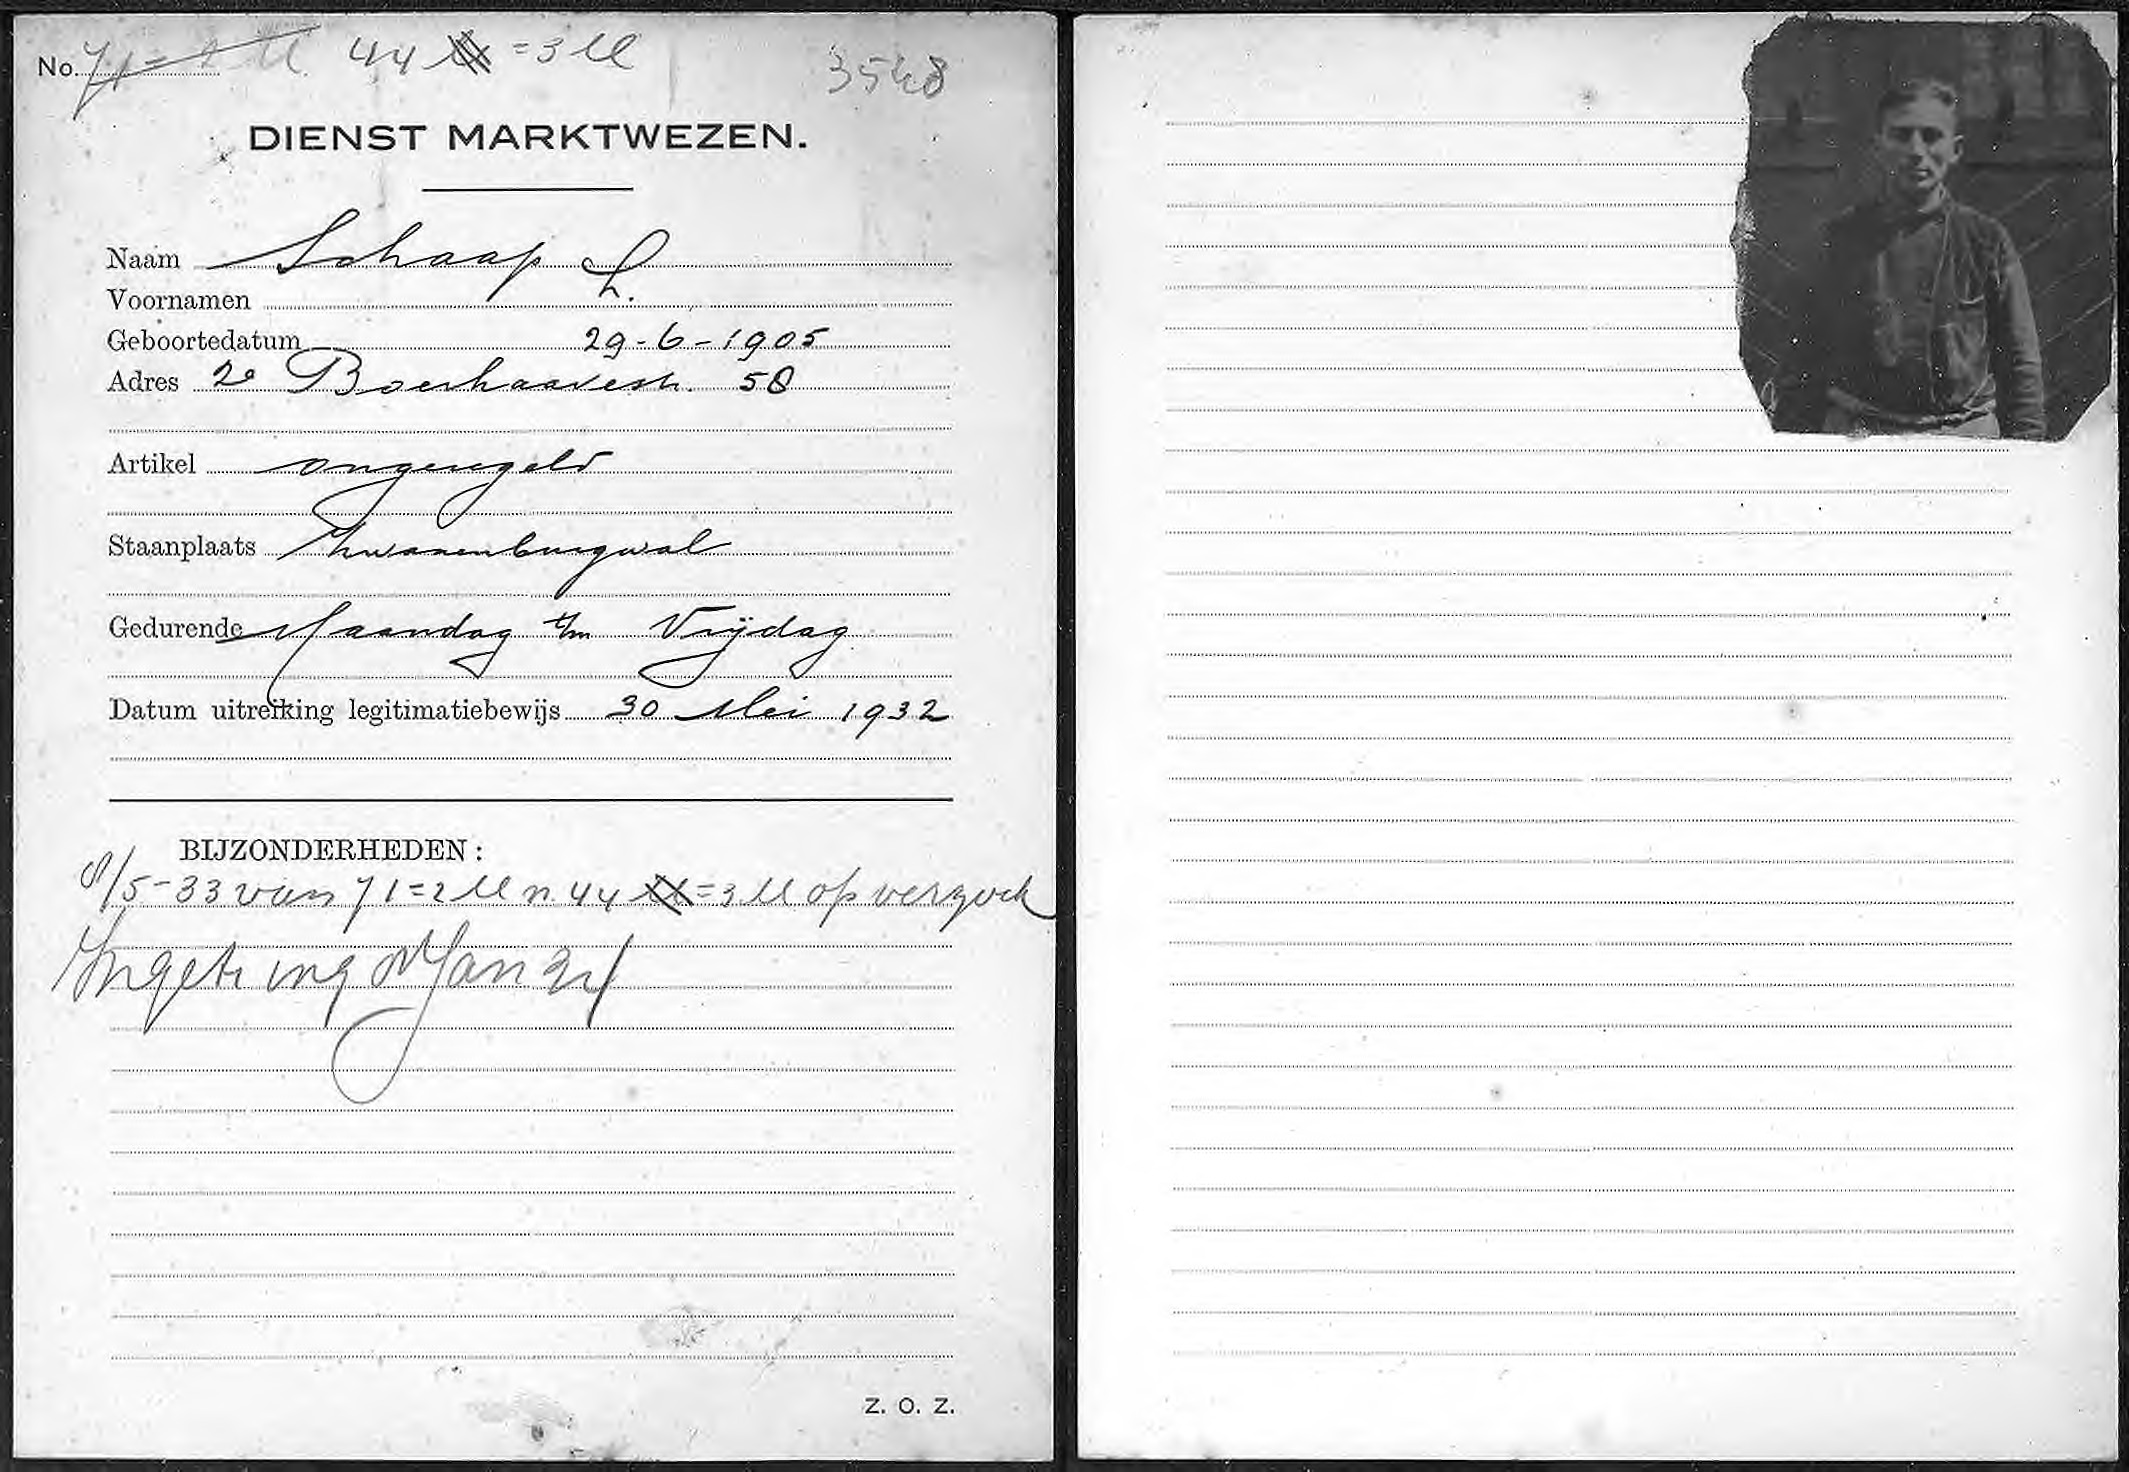 No. 71 = 2 M 44 = 3 M 3548
DIENST MARKTWEZEN.
Naam Schaap L.
Voornamen
Geboortedatum 29-6-1905
Adres 2e Boerhaavestr. 58
Artikel ongeregeld
Staanplaats Zwanenburgwal
Gedurende Maandag t/m Vrijdag
Datum uitreiking legitimatiebewijs 30 Mei 1932
BIJZONDERHEDEN:
8/5-33 van 71=2 M n. 44 =3 M op verzoek
Ingetr ing Jan 34
Z. O. Z.